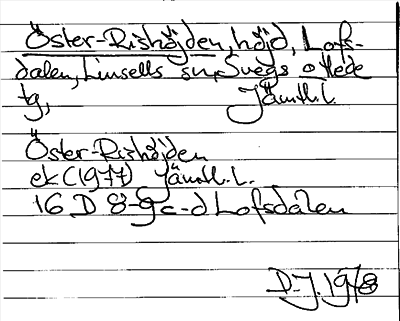 Öster-Rishöjden, höjd, Lofs-
dalen, Linsells sn, Svegs o Hede
tg, Jämtl.l.
Öster-Rishöjden
ek (1977) Jämtl.l.
16 D 8-9 c-d Lofsdalen
D-J. 1978